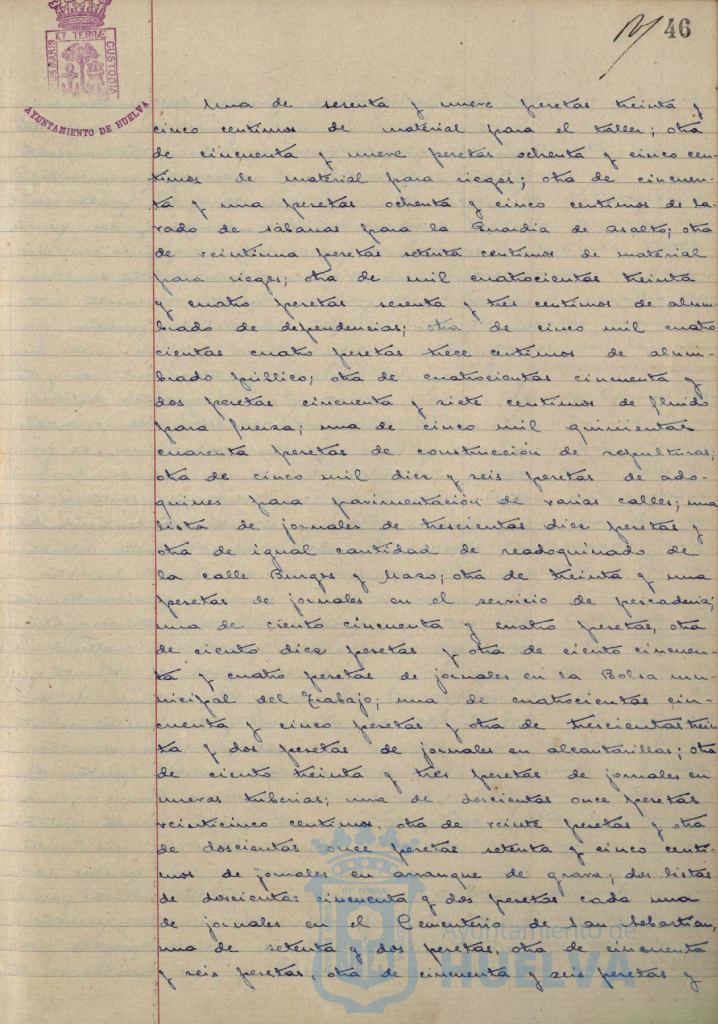 46
PORTUS MARIS ET TERRÆ CUSTODIA
AYUNTAMIENTO DE HUELVA
Una de sesenta y nueve pesetas treinta y
cinco centimos de material para el taller; otra
de cincuenta y nueve pesetas ochenta y cinco cen-
timos de material para riegos; otra de cincuen-
ta y una pesetas ochenta y cinco centimos de la-
vado de sábanas para la Guardia de asalto; otra
de veintiuna pesetas setenta centimos de material
para riegos; otra de mil cuatrocientas treinta
y cuatro pesetas sesenta y tres centimos de alum-
brado de dependencias; otra de cinco mil cuatro
cientas cuatro pesetas trece centimos de alum-
brado público; otra de cuatrocientas cincuenta y
dos pesetas cincuenta y siete centimos de fluido
para fuerza; una de cinco mil quinientas
cuarenta pesetas de construcción de sepulturas;
otra de cinco mil diez y seis pesetas de ado-
quines para pavimentación de varias calles; una
lista de jornales de trescientas diez pesetas y
otra de igual cantidad de readoquinado de
la calle Burgos y Mazo; otra de treinta y una
pesetas de jornales en el servicio de pescaderia;
una de ciento cincuenta y cuatro pesetas, otra
de ciento diez pesetas y otra de ciento cincuen-
ta y cuatro pesetas de jornales en la Bolsa mu-
nicipal del Trabajo; una de cuatrocientas cin-
cuenta y cinco pesetas y otra de trescientas trein
ta y dos pesetas de jornales en alcantarillas; otra
de ciento treinta y tres pesetas de jornales en
nuevas tuberias; una de doscientas once pesetas
veinticinco centimos, otra de veinte pesetas y otra
de doscientas once pesetas setenta y cinco centi-
mos de jornales en arranque de grava; dos listas
de doscientas cincuenta y dos pesetas cada una
de jornales en el Cementerio de San Sebastian,
una de setenta y dos pesetas, otra de cincuenta
y seis pesetas, otra de cincuenta y seis pesetas y
Ayuntamiento de
HUELVA